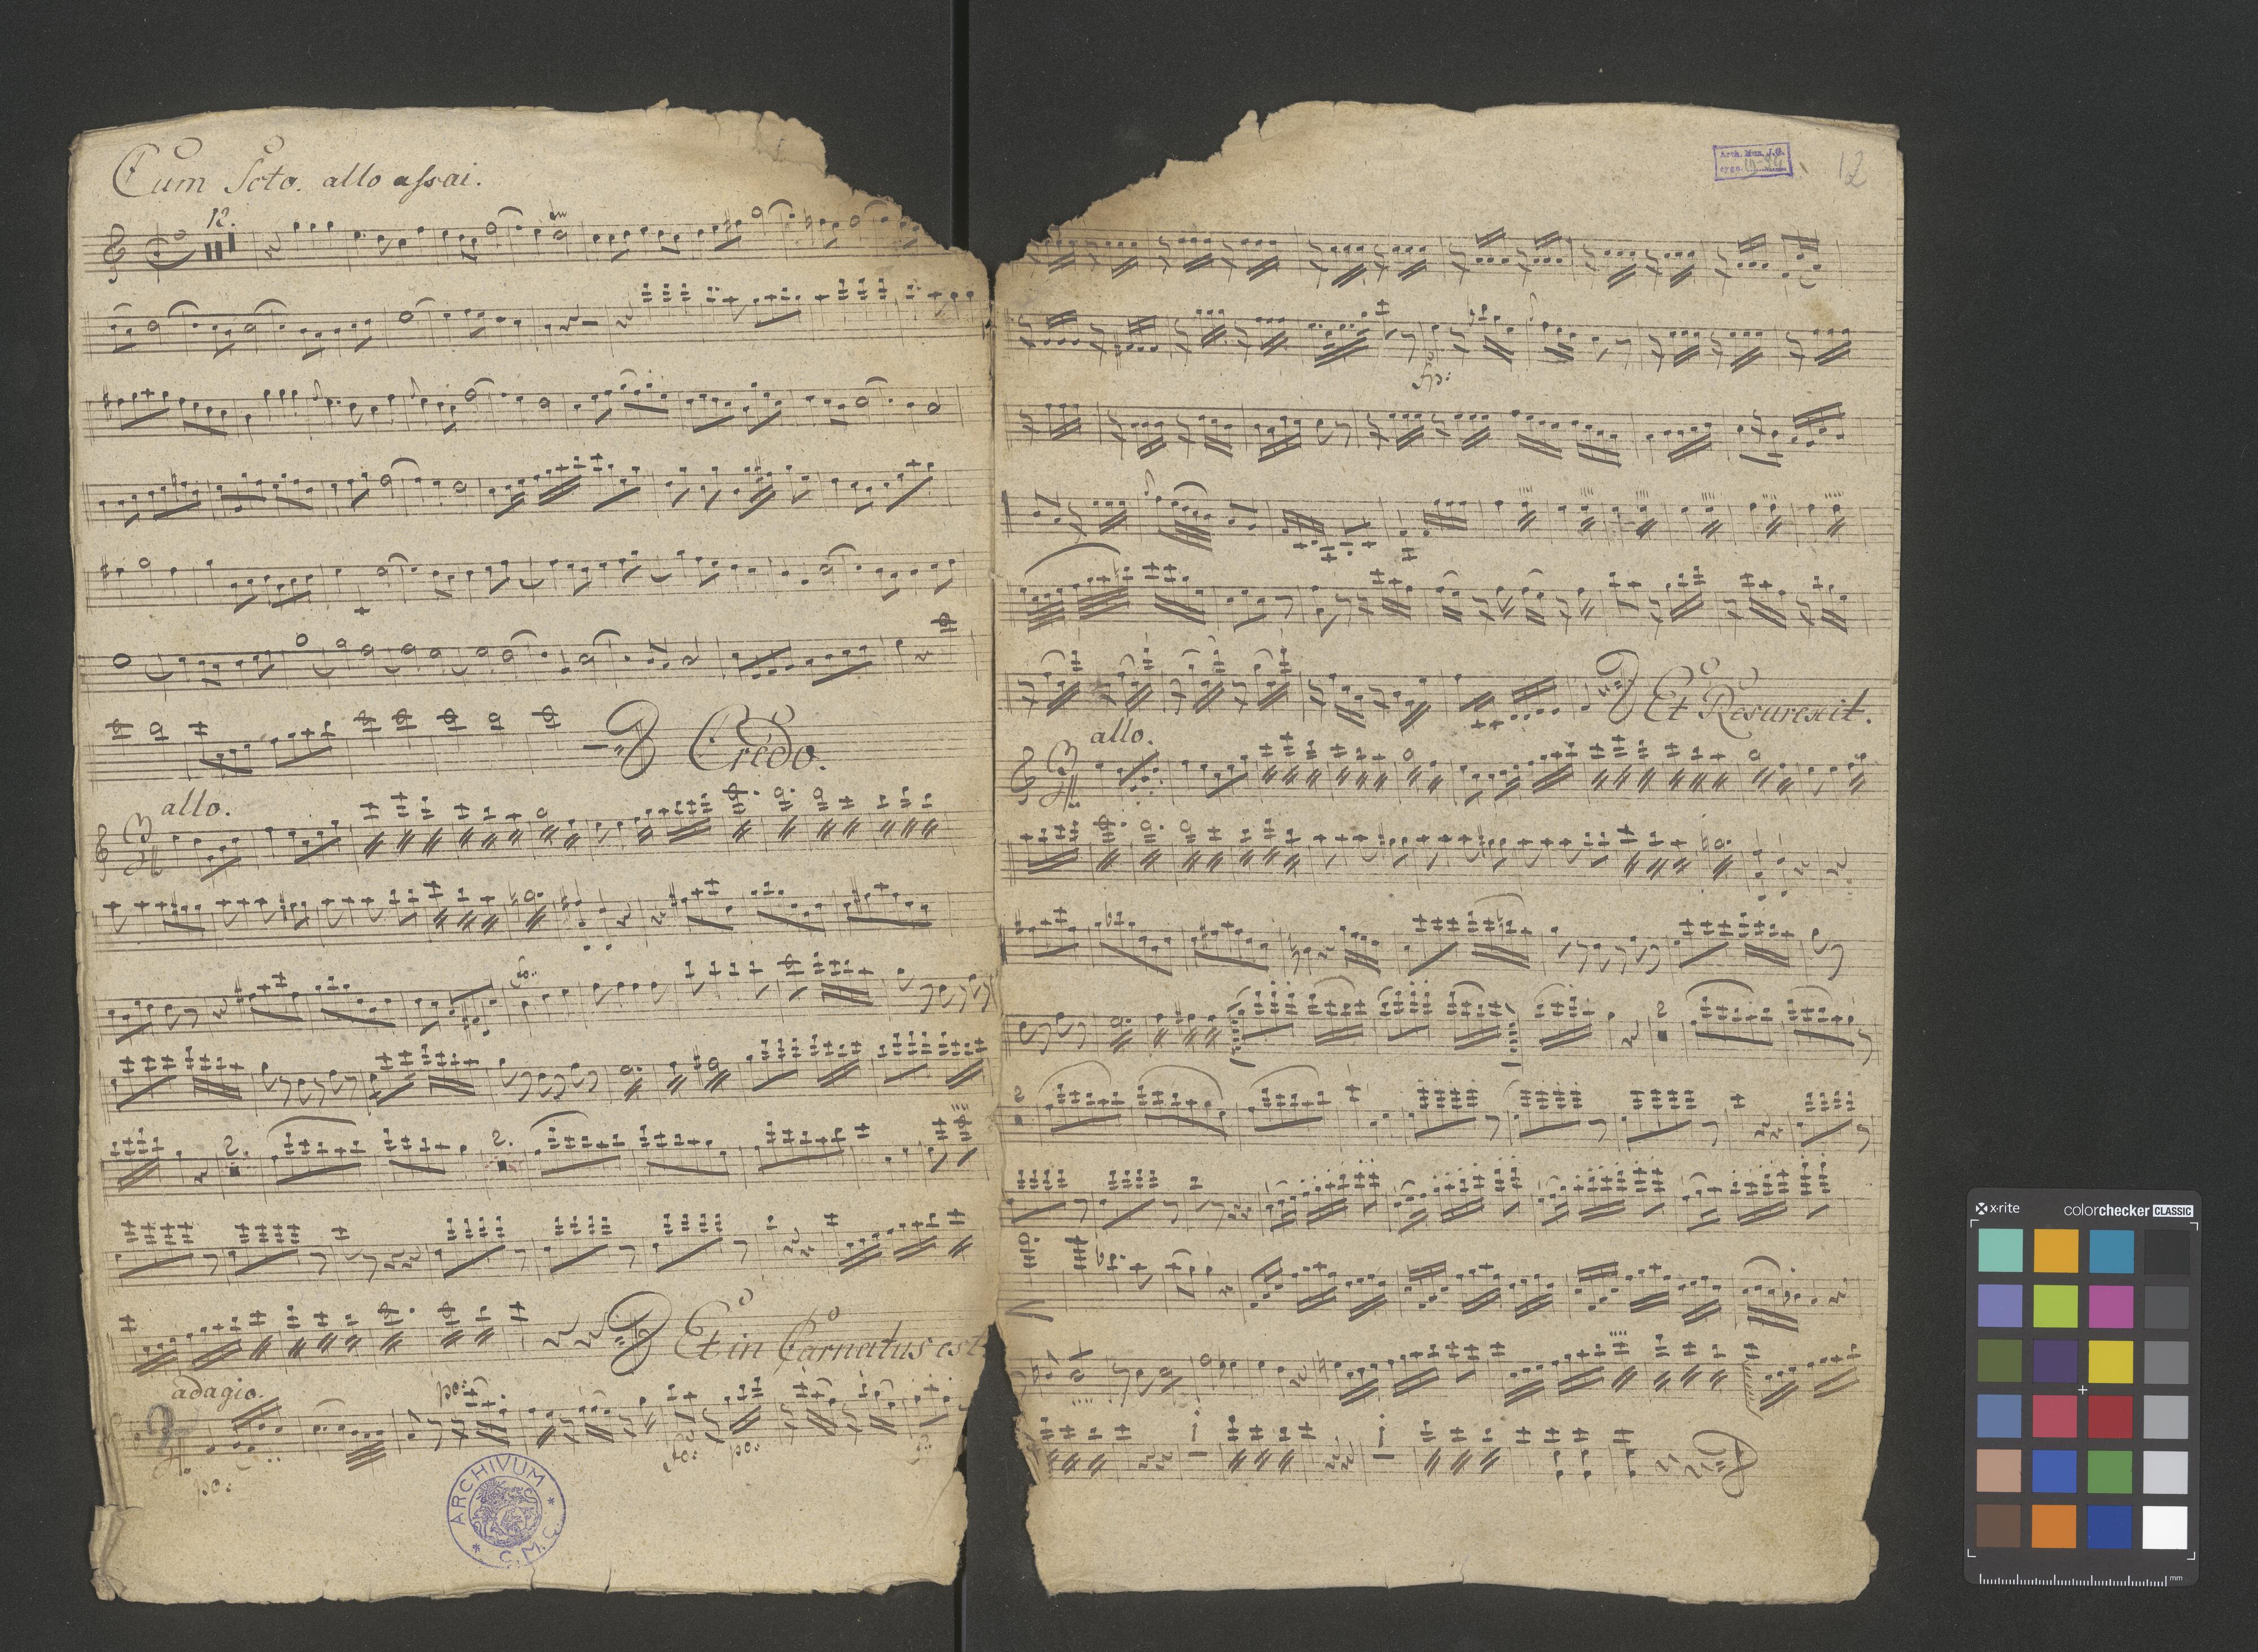 Cum Scto. allo assai.
12.
Credo.
allo.
fo.
2.
2.
Et in Carnatus est
adagio.
po:
po:
fo:
po:
ARCHIVUM
C. M. C.
Arch. Mus. J.G.
12
fp:
Et Resurexit.
allo.
2
2
x-rite
colorchecker CLASSIC
mm